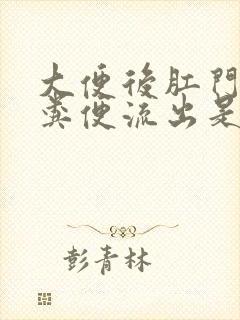 大便後肛門
糞便流出是
彭青林